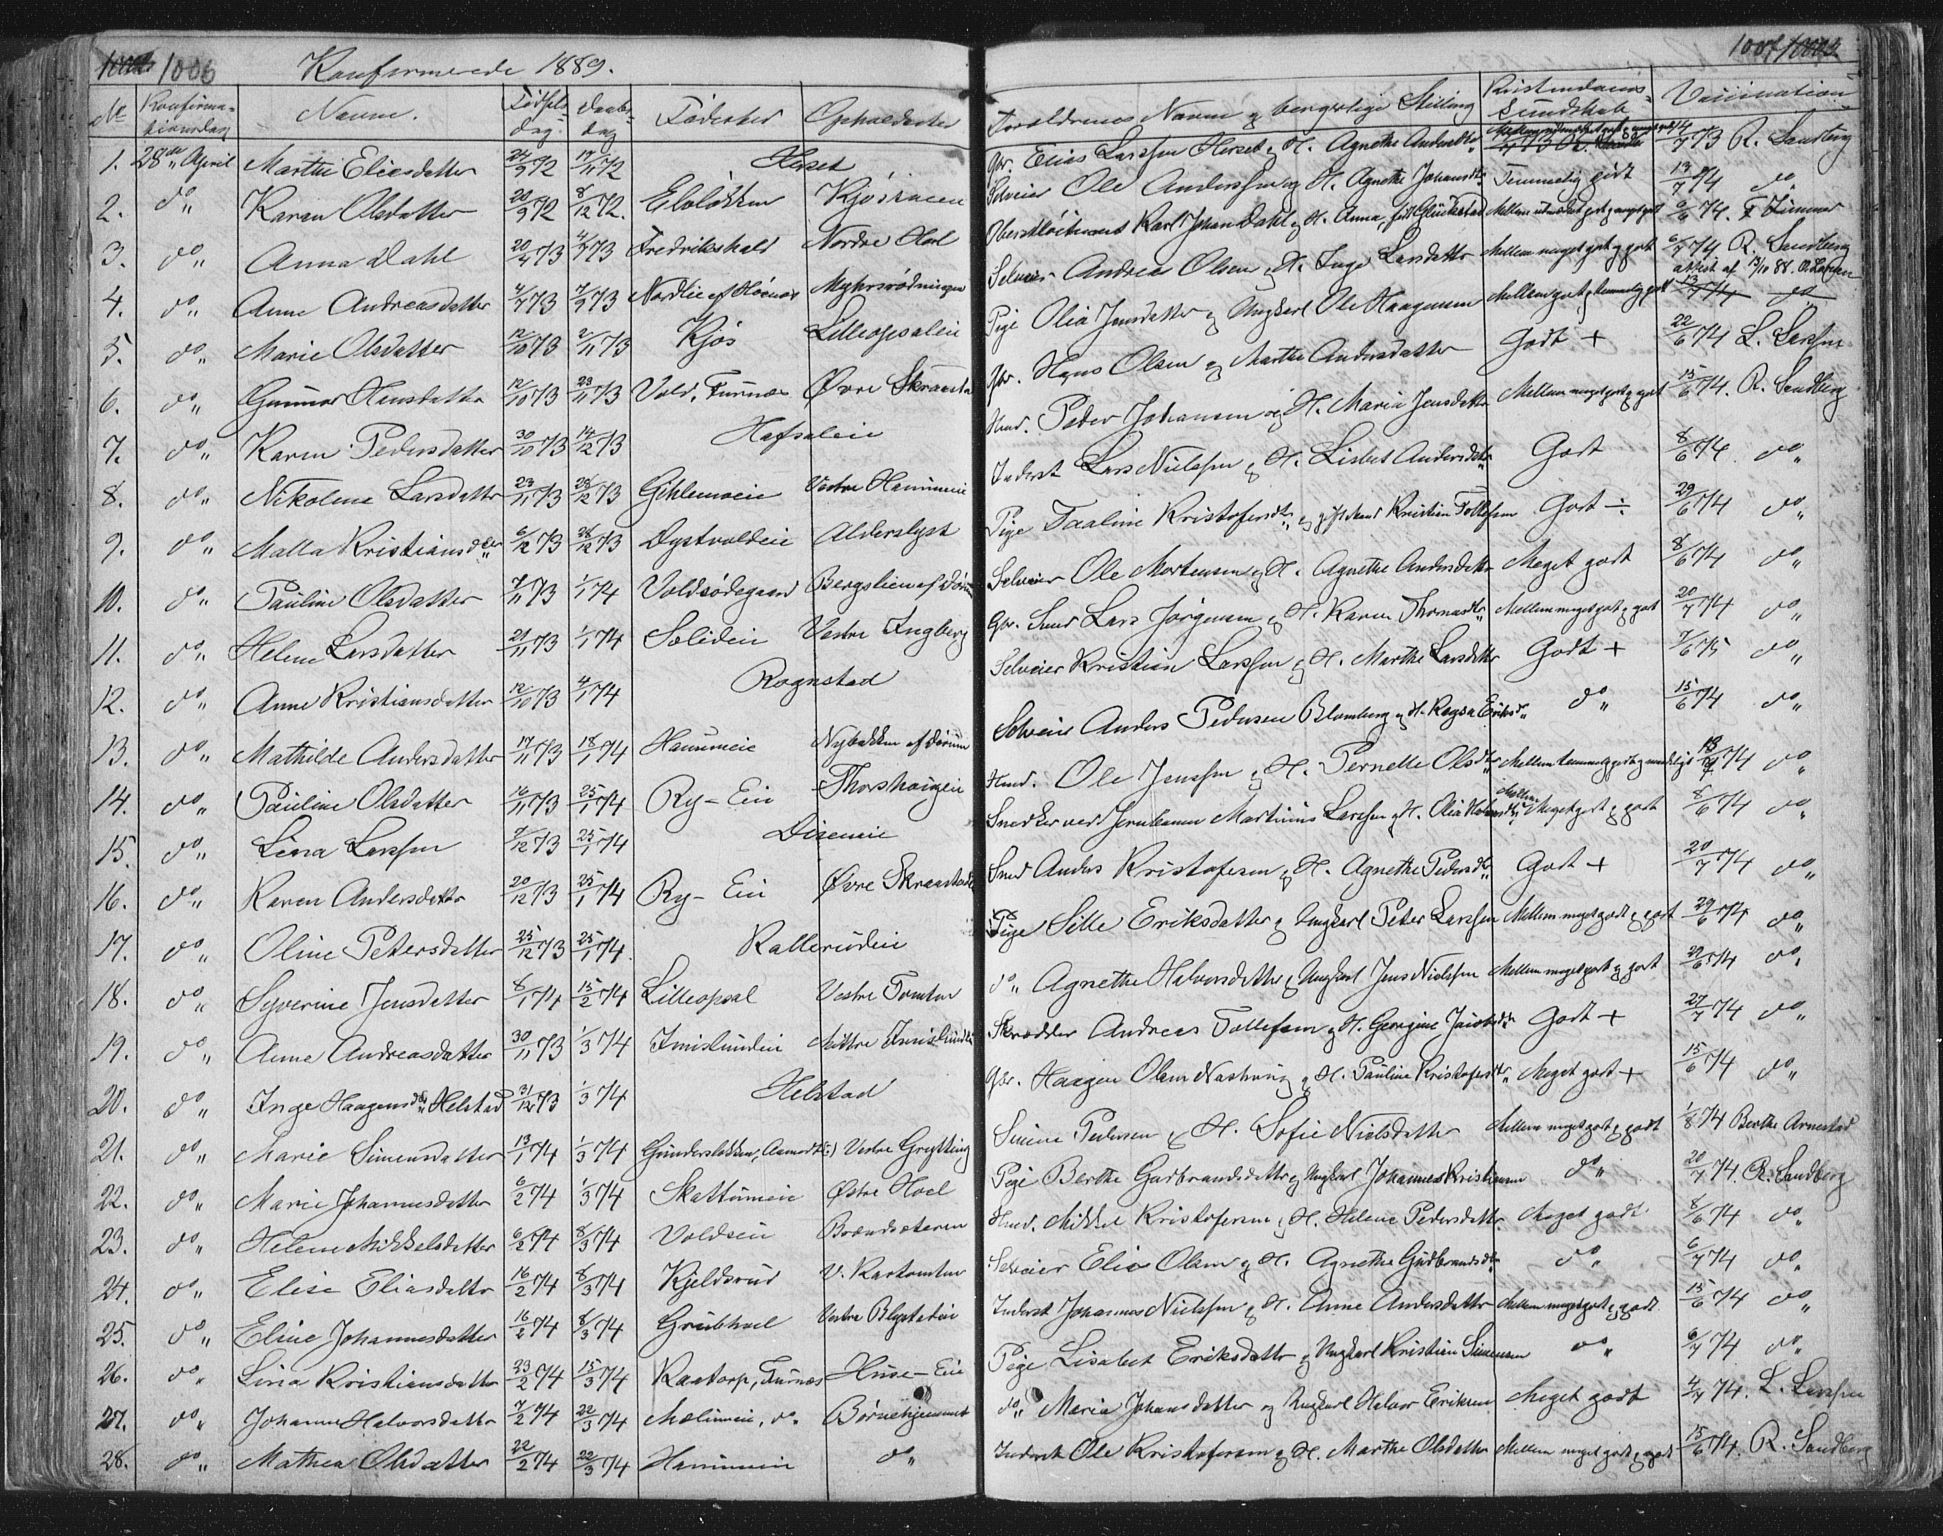 1006
Konfirmerede 1889.
1007
№ Konfirmationsdag Navne. Fødselsdag Daabsdag Fødested Opholdssted Forældrenes Navne og borgerlige Stilling Kristendomskundskab Vaccination
1. 28de April Marthe Eliesdatter 24/9 72 17/11 72 Herset Gbr. Elias Larssen Herset og H. Agnethe Andersdtr 73 R. Sandberg
2. do Karen Olsdatter 20/9 72 8/12 72. Kjøshagen Selveier Ole Anderssen og H. Agnethe Johansdtr Temmelig godt 13/7 74 do
3. do Anna Dahl 20/4 73 73 Fredrikshald Nordre Hoel Karl Johan Dahl og H. Anna, født Glückstad 6/6 74.
4. do Anne Andreasdatter 73 73 Myhrsrødningen Selveier Andreas Olsen og H. Inge Larsdatter Mellem meget godt og godt 6/7 74 R. Sandberg
5. do Marie Olsdatter 12/10 73 2/11 73 Kjøs Lilleopsaleie Pige Olia Jensdatter og Ungkarl Ole Haagensen Mellem godt og temmelig godt
6. do Gunnor Hansdatter 12/10 73 23/11 73 Vold, Furnæs Øvre Skraastad Gbr. Hans Olsen og Marthe Andersdatter Godt + 22/6 74 L. Larssen
7. do Karen Pedersdatter 30/10 73 14/12 73 Hafsaleie Hmd. Peder Johansen og H. Maria Jensdatter Mellem meget godt og godt 15/6 74. R. Sandberg
8. do Nikoline Larsdatter 23/11 73 26/12 73 Gihlemeie Vestre Hammeeie Inderst Lars Nielssen og H. Lisbet Andersdtr Godt 8/6 74 do
9. do Malla Kristiansdtr 6/12 73 26/12 73 Dystvoldeie Alderslyst Pige Taaline Kristofersdtr og Kristian Tollefsen Godt ÷ 29/6 74 do
10. do Pauline Olsdatter 7/11 73 1/1 74 Voldsødegaard Bergslien af Selveier Ole Mortensen og H. Agnethe Andersdatter Meget godt 8/6 74 do
11. do Helene Larsdatter 21/11 73 1/1 74 Solieeie Vestre Ingberg Gbr. Smed Lars Jørgensen og H. Karen Thomasdtr Mellem meget godt og godt 20/7 74 do
12. do Anne Kristiansdatter 12/10 73 4/1 74 Rognstad Selveier Kristian Larssen og H. Marthe Larsdatter Godt + 75 do
13. do Mathilde Andersdatter 17/11 73 18/1 74 Hammeeie Nybakken af Selveier Anders Pedersen Blomberg og H. Ragna Eriksd. do 15/6 74 do
14. do Pauline Olsdatter 16/11 73 25/1 74 Ry-Eie Thorshaugeie Hmd. Ole Jenssen og H. Pernelle Olsdtr 74 do
15. do Lina Larssen 7/12 73 25/1 74 Diseneie Snedker ved Jernbanen Martinus Larssen og H. Mellem Meget godt og godt 8/6 74 do
16. do Karen Andersdatter 20/12 73 25/1 74 Ry-Eie Øvre Skraastad Smed Anders Kristofersen og H. Agnethe Pedersdtr Godt + 20/7 74 do
17. do Oline Petersdatter 25/12 73 25/1 74. Kallerudeie Pige Sille Eriksdatter og Ungkarl Peter Larssen Mellem meget godt og godt 29/6 74 do
18. do Syverine Jensdatter 8/1 74 15/2 74 Lilleopsal Vestre Tomter do Agnethe Halvorsdatter og Ungkarl Jens Nielssen Mellem meget godt og godt 74 do
19. do Anne Andreasdatter 30/11 73 1/3 74 Imislundeie Mittre Imislund Skrædder Andreas Tollefsen og H. Georgine Jakobsdtr Godt + 27/7 74 do
20. do Inge Haagensdtr Helstad 31/12 73 1/3 74 Helstad Gbr. Haagen Olsen og H. Pauline Kristofersdtr Meget godt + 15/6 74 do
21. do Marie Simensdatter 13/1 74 1/3 74 Vestre Grytting Simen Pedersen og H. Sofie Nielsdatter Mellem meget godt og godt 1/8 74 Berthe Arnestad
22. do Marie Johannesdatter 6/2 74 1/3 74 Skattumeie Østre Hoel Pige Berthe Gudbrandsdatter og Ungkarl Johannes Kristiansen do 20/7 74 R. Sandberg
23. do Helene Mikkelsdatter 6/2 74 8/3 74 Voldseie Brændsæteren Hmd. Mikkel Kristofersen og H. Helene Pedersdatter Meget godt 8/6 74 do
24. do Elise Eliasdatter 16/2 74 8/3 74 Kjeldsrud V. Kartomten Selveier Elias Olsen og H. Agnethe Gudbrandsdtr do 6/7 74 do
25. do Eline Johannesdatter 16/2 74 8/3 74 Grubhoel Vestre Blystadeie Inderst Johannes Nielssen og H. Anne Andersdatter Mellem meget godt og godt. 15/6 74 do
26. do Lina Kristiansdatter 23/2 74 15/3 74 Kaatorp, Furnæs Huse-Eie Pige Lisabet Eriksdatter og Ungkarl Kristian Simensen do 6/7 74 do
27. do Johanne Halvorsdatter 7/2 74 22/3 74 Mælumeie, do Børnehjemmet do Maria Johansdatter og Ungkarl Halvor Eriksen Meget godt 4/7 74. L. Larssen
28. do Mathea Olsdatter 22/2 74 22/3 74 Hammeeie do Inderst Ole Kristofersen og H. Marthe Olsdatter Mellem meget godt og godt 15/6 74. R. Sandberg